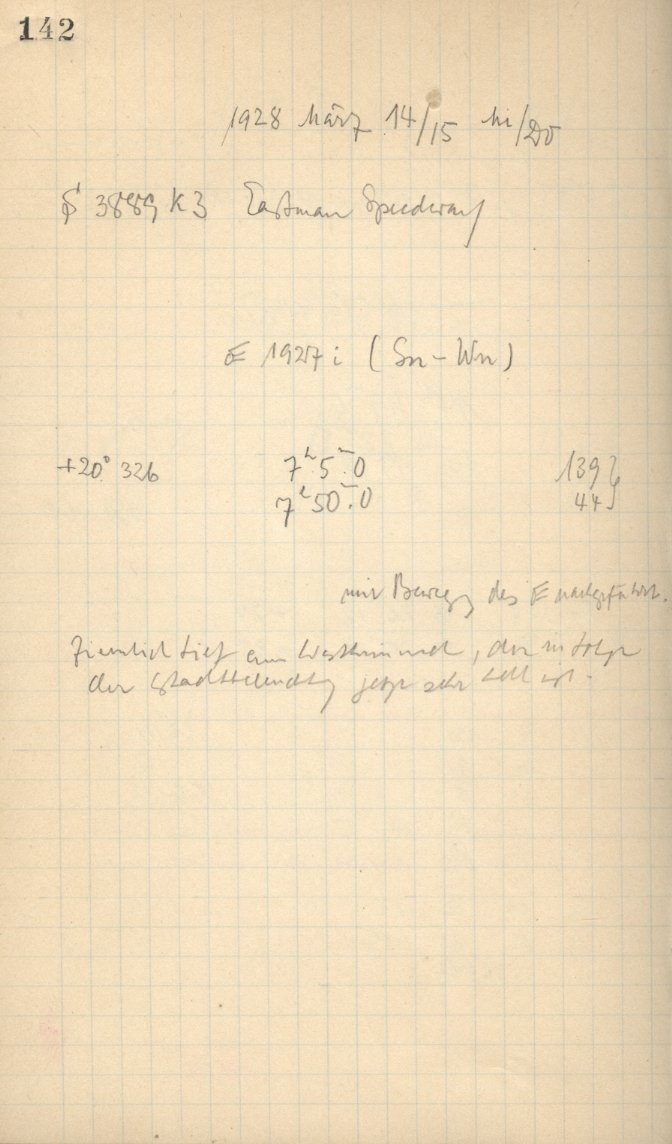 142
1928 März 14/15 Mi/Do
3889 K3 Eastman Speedway
1927 i (Sn-Wn)
+20° 326 7h 5m.0 139
7h 50m.0 44
mit Bewegg des nachgeführt.
Ziemlich tief am Westhimmel, der infolge
der Stadtbeleuchtg jetzt sehr hell ist.